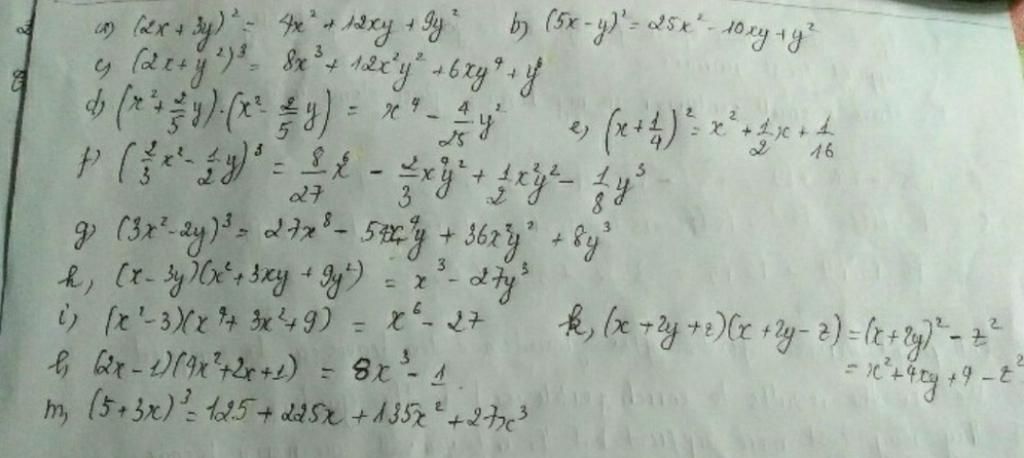 a) (2x + 3y)² = 4x² + 12xy + 9y² b) (5x - y)² = 25x² - 10xy + y²
c) (2x + y²)³ = 8x³ + 12x²y² + 6xy⁴ + y⁶
d) (x² + 2/5 y).(x² - 2/5 y) = x⁴ - 4/25 y² e, (x + 1/4)² = x² + 1/2 x + 1/16
f) (2/3 x² - 1/2 y)³ = 8/27 x⁶ - 2/3 x⁴y² + 1/2 x²y² - 1/8 y³
g) (3x² - 2y)³ = 27x⁸ - 54x⁴y + 36x²y² + 8y³
h, (x - 3y)(x² + 3xy + 9y²) = x³ - 27y³
i) (x² - 3)(x⁴ + 3x² + 9) = x⁶ - 27 k, (x + 2y + z)(x + 2y - z) = (x + 2y)² - z²
= x² + 4xy + 4 - z²
l, (2x - 1)(4x² + 2x + 1) = 8x³ - 1
m, (5 + 3x)³ = 125 + 225x + 135x² + 27x³